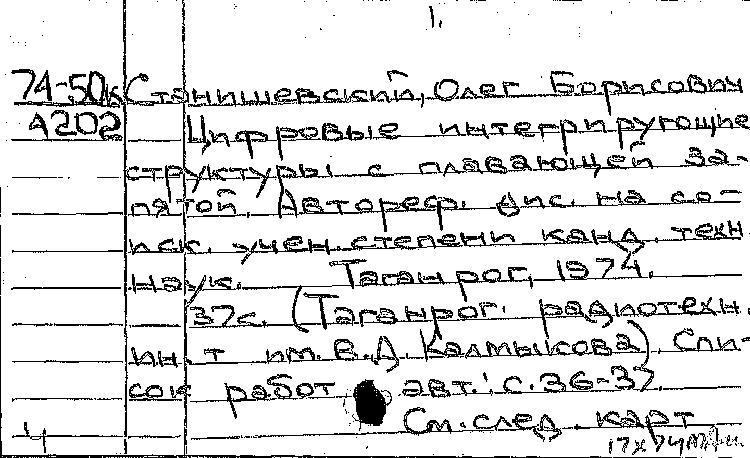 1.
74-50к Станишевский, Олег Борисович
А202 Цифровые интегрирующие
структуры с плавающей за-
пятой. Автореф. дис. на со-
иск. учен. степени канд. техн.
наук. Таганрог, 1974.
37с. (Таганрог. радиотехн.
ин-т им. В.Д. Калмыкова). Спи-
сок работ авт.: с.36-37.
См. след. карт
4